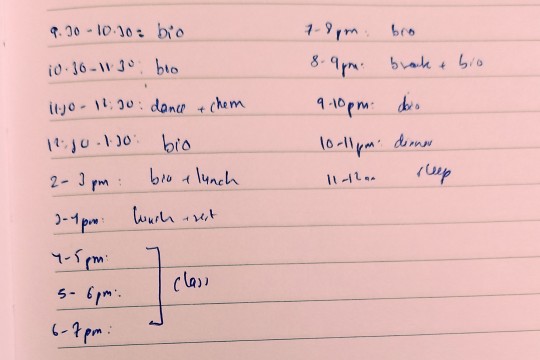 9.30 - 10.30: bio
10.30 - 11.30: bio
11.30 - 12.30: dance + chem
12.30 - 1.30: bio
2 - 3 pm: bio + lunch
3-4pm: lunch + rest
4-5pm:
5- 6pm:
class
6-7pm:
7-8pm: bio
8-9pm: break + bio
9-10pm: bio
10-11pm: dinner
11-12 sleep